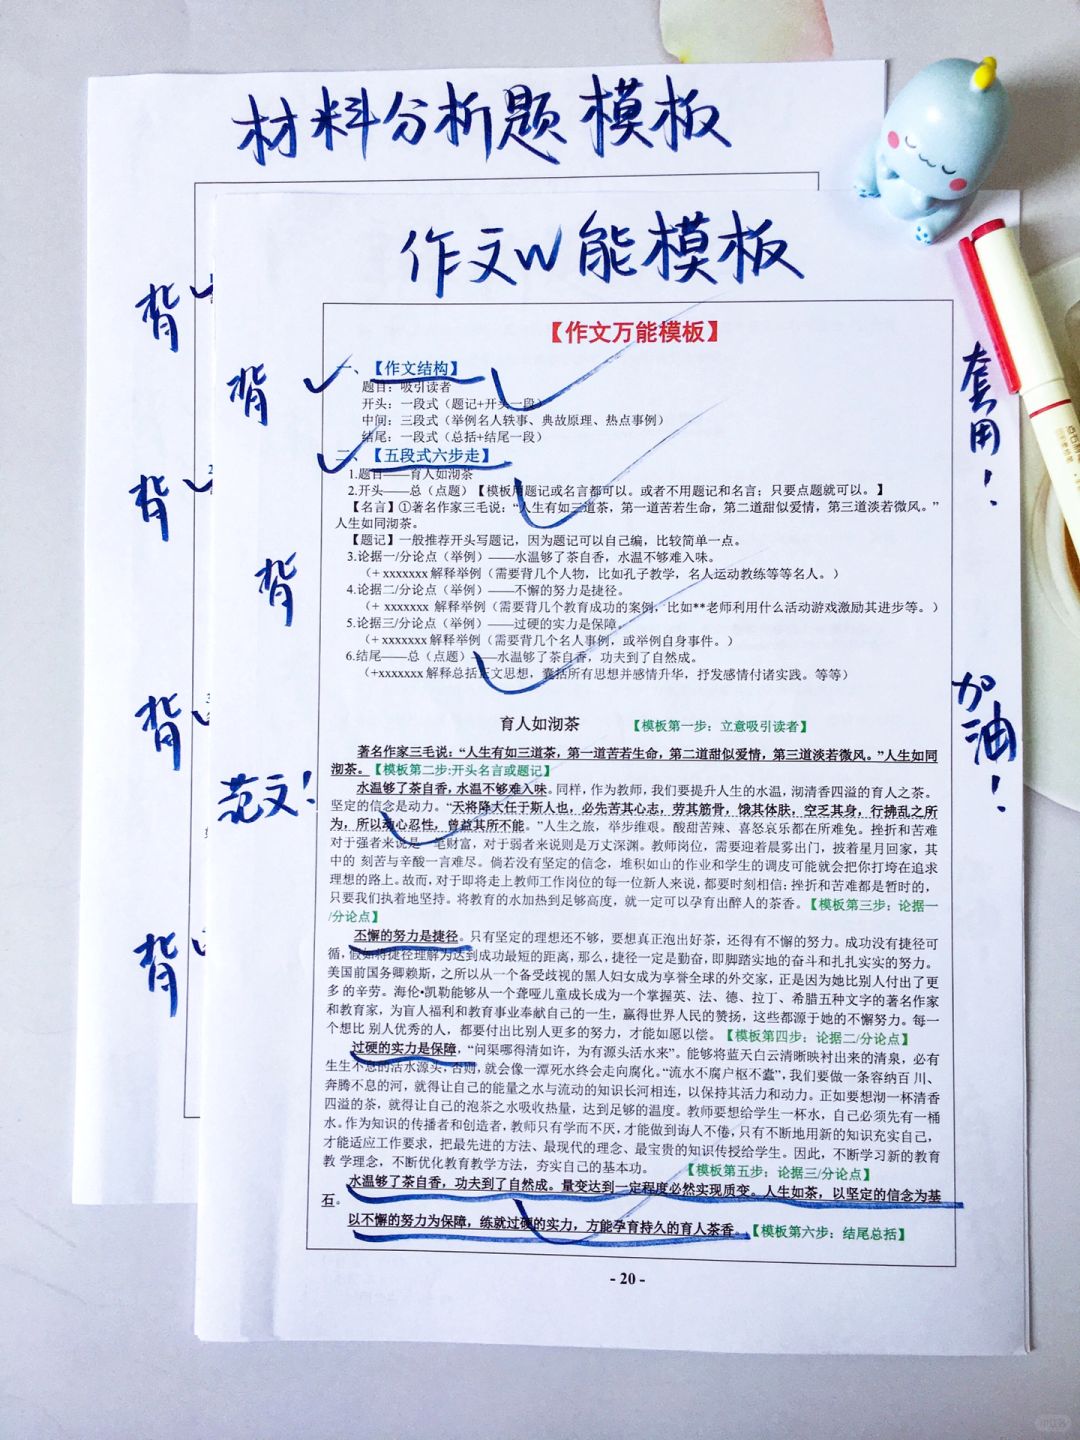 材料分析题模板
作文W能模板
【作文万能模板】
背
背
背
背
背
背
范文！
套用！
加油！
一、【作文结构】
题目：吸引读者
开头：一段式（题记+开头一段）
中间：三段式（举例名人轶事、典故原理、热点事例）
结尾：一段式（总括+结尾一段）
二、【五段式六步走】
1.题目——育人如沏茶
2.开头——总（点题）【模板用题记或名言都可以。或者不用题记和名言；只要点题就可以。】
【名言】①著名作家三毛说：“人生有如三道茶，第一道苦若生命，第二道甜似爱情，第三道淡若微风。”
人生如同沏茶。
【题记】一般推荐开头写题记，因为题记可以自己编，比较简单一点。
3.论据一/分论点（举例）——水温够了茶自香，水温不够难入味。
（+ xxxxxxx 解释举例（需要背几个人物，比如孔子教学，名人运动教练等等名人。）
4.论据二/分论点（举例）——不懈的努力是捷径。
（+ xxxxxxx 解释举例（需要背几个教育成功的案例，比如**老师利用什么活动游戏激励其进步等。）
5.论据三/分论点（举例）——过硬的实力是保障。
（+ xxxxxxx 解释举例（需要背几个名人事例，或举例自身事件。）
6.结尾——总（点题）——水温够了茶自香，功夫到了自然成。
（+xxxxxxx 解释总括正文思想，囊括所有思想并感情升华，抒发感情付诸实践。等等）
育人如沏茶 【模板第一步：立意吸引读者】
著名作家三毛说：“人生有如三道茶，第一道苦若生命，第二道甜似爱情，第三道淡若微风。”人生如同
沏茶。【模板第二步:开头名言或题记】
水温够了茶自香，水温不够难入味。同样，作为教师，我们要提升人生的水温，沏清香四溢的育人之茶。
坚定的信念是动力。“天将降大任于斯人也，必先苦其心志，劳其筋骨，饿其体肤，空乏其身，行拂乱之所
为，所以动心忍性，曾益其所不能。”人生之旅，举步维艰。酸甜苦辣、喜怒哀乐都在所难免。挫折和苦难
对于强者来说是一笔财富，对于弱者来说则是万丈深渊。教师岗位，需要迎着晨雾出门，披着星月回家，其
中的 刻苦与辛酸一言难尽。倘若没有坚定的信念，堆积如山的作业和学生的调皮可能就会把你打垮在追求
理想的路上。故而，对于即将走上教师工作岗位的每一位新人来说，都要时刻相信：挫折和苦难都是暂时的，
只要我们执着地坚持。将教育的水加热到足够高度，就一定可以孕育出醉人的茶香。【模板第三步：论据一
/分论点】
不懈的努力是捷径。只有坚定的理想还不够，要想真正泡出好茶，还得有不懈的努力。成功没有捷径可
循，假如将捷径理解为达到成功最短的距离，那么，捷径一定是勤奋，即脚踏实地的奋斗和扎扎实实的努力。
美国前国务卿赖斯，之所以从一个备受歧视的黑人妇女成为享誉全球的外交家，正是因为她比别人付出了更
多 的辛劳。海伦•凯勒能够从一个聋哑儿童成长成为一个掌握英、法、德、拉丁、希腊五种文字的著名作家
和教育家，为盲人福利和教育事业奉献自己的一生，赢得世界人民的赞扬，这些都源于她的不懈努力。每一
个想比 别人优秀的人，都要付出比别人更多的努力，才能如愿以偿。【模板第四步：论据二/分论点】
过硬的实力是保障，“问渠哪得清如许，为有源头活水来”。能够将蓝天白云清晰映衬出来的清泉，必有
生生不息的活水源头，否则，就会像一潭死水终会走向腐化。“流水不腐户枢不蠹”，我们要做一条容纳百 川、
奔腾不息的河，就得让自己的能量之水与流动的知识长河相连，以保持其活力和动力。正如要想沏一杯清香
四溢的茶，就得让自己的泡茶之水吸收热量，达到足够的温度。教师要想给学生一杯水，自己必须先有一桶
水。作为知识的传播者和创造者，教师只有学而不厌，才能做到诲人不倦，只有不断地用新的知识充实自己，
才能适应工作要求，把最先进的方法、最现代的理念、最宝贵的知识传授给学生。因此，不断学习新的教育
教 学理念，不断优化教育教学方法，夯实自己的基本功。 【模板第五步：论据三/分论点】
水温够了茶自香，功夫到了自然成。量变达到一定程度必然实现质变。人生如茶，以坚定的信念为基
石。
以不懈的努力为保障，练就过硬的实力，方能孕育持久的育人茶香。【模板第六步：结尾总括】
- 20 -